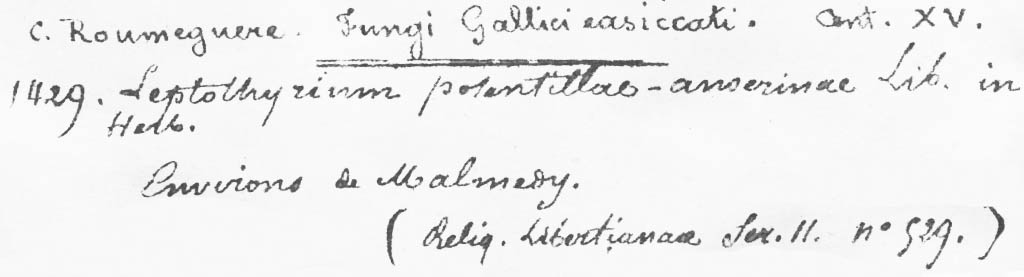 C. Roumeguere. Fungi Gallici exsiccati. Cent. XV.
1429. Leptothyrium potentillae-anserinae Lib. in
Herb.
Environs de Malmedy.
(Reliq. Libertianae Ser. II. nº 529.)